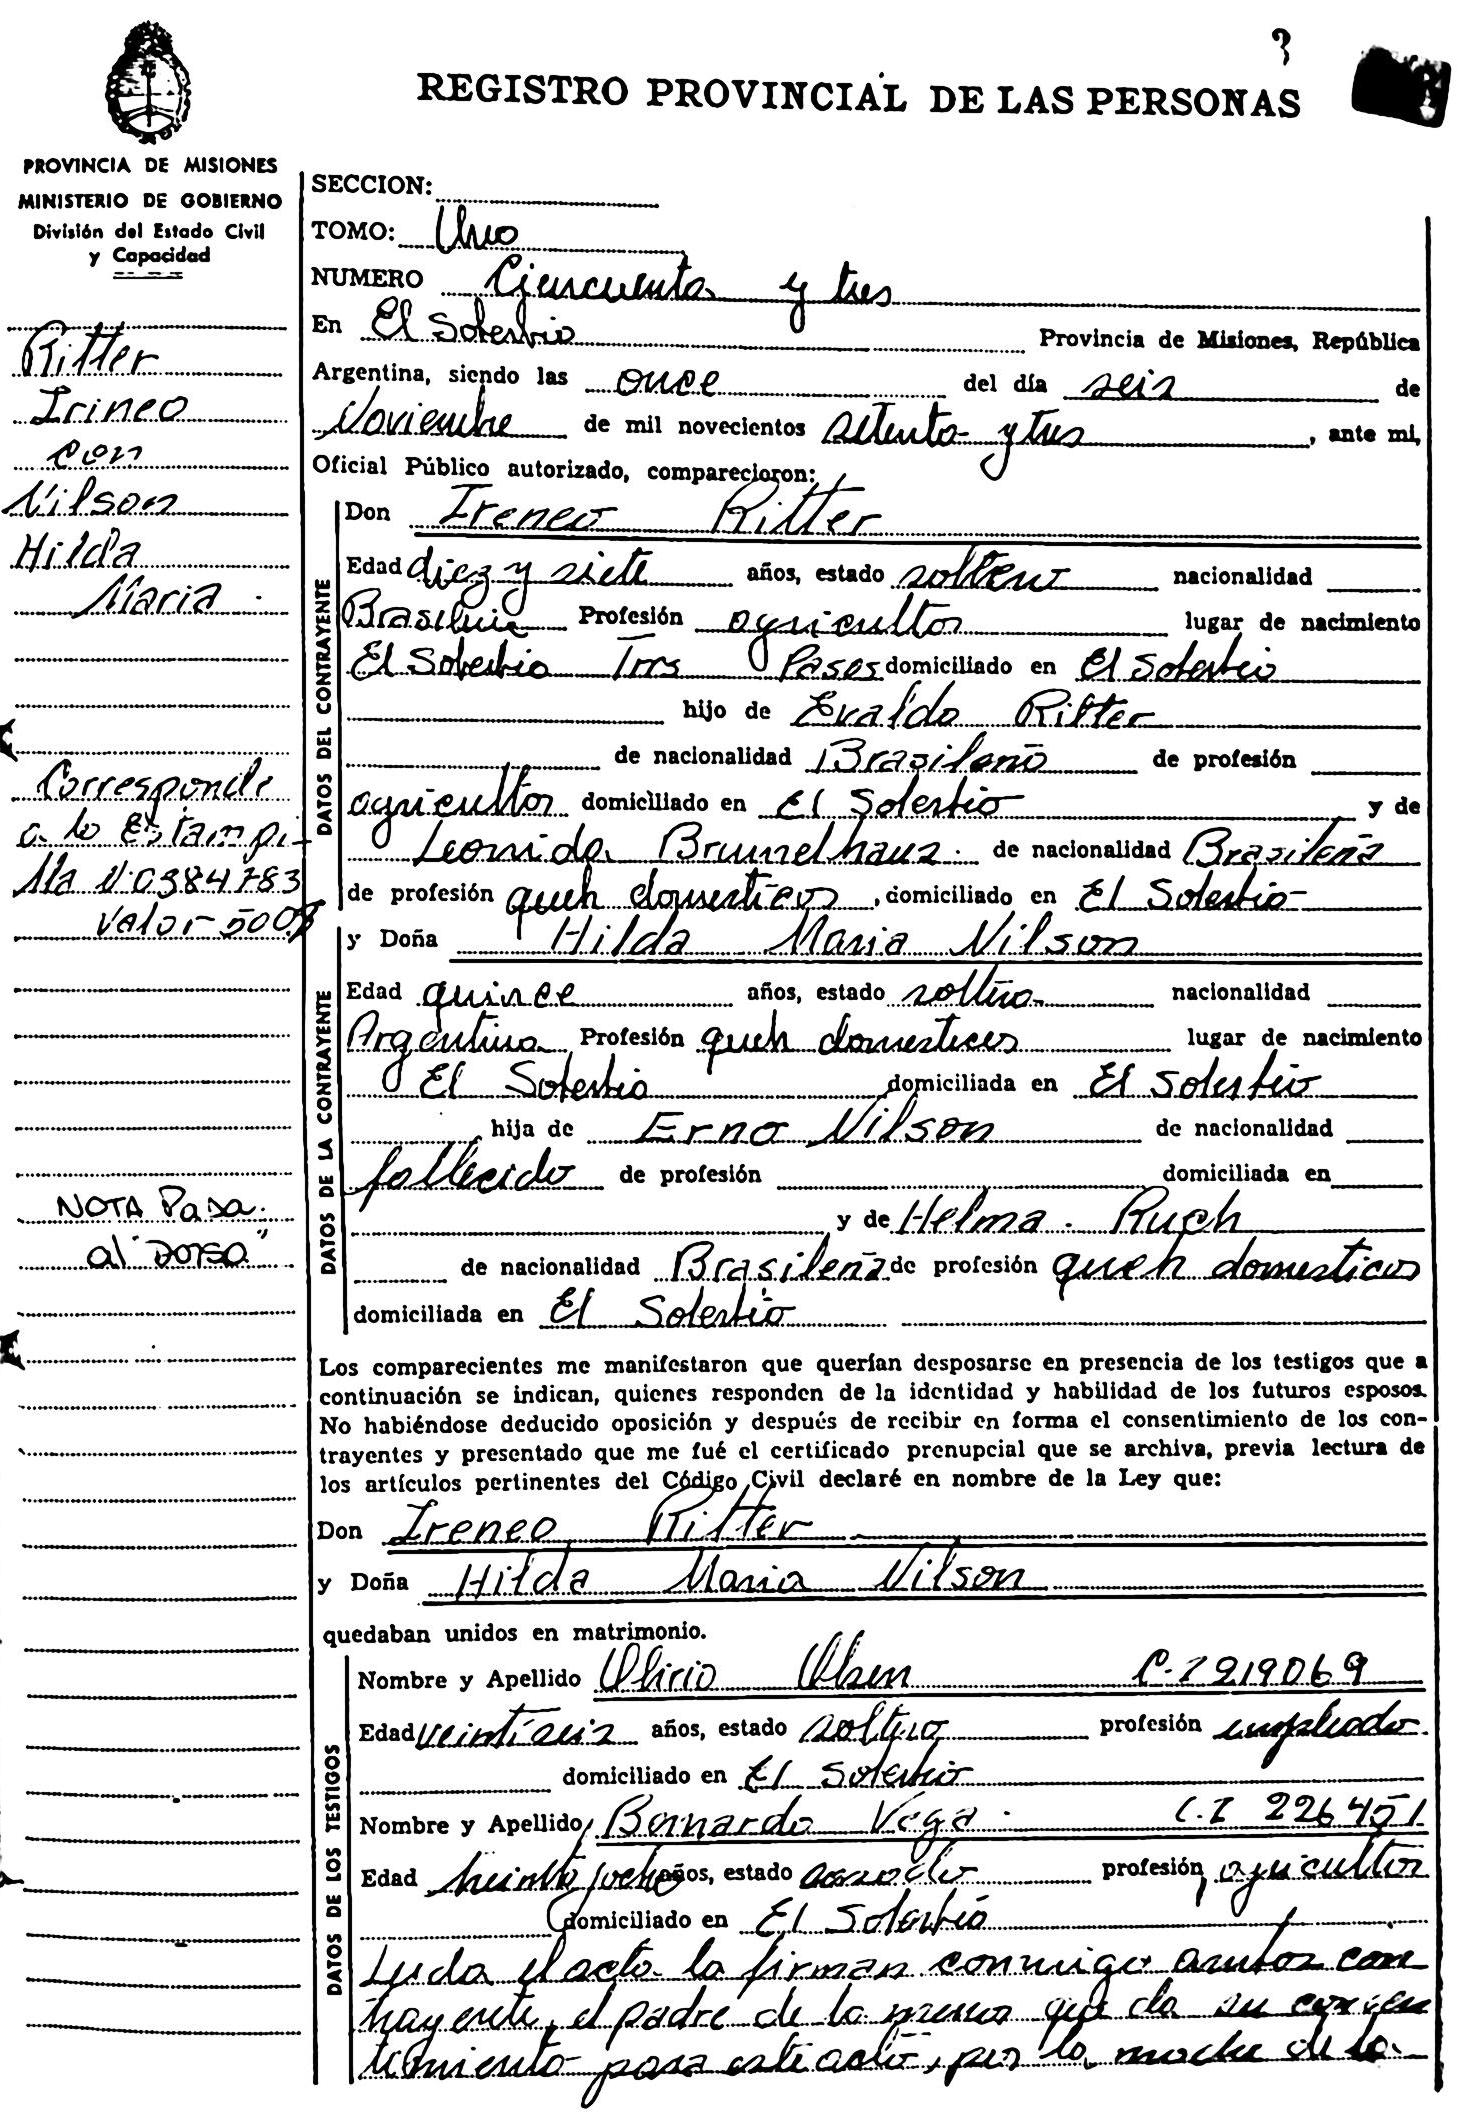 REGISTRO PROVINCIAL DE LAS PERSONAS
PROVINCIA DE MISIONES
MINISTERIO DE GOBIERNO
División del Estado Civil
y Capacidad
Ritter
Irineo
con
Nilson
Hilda
Maria
Corresponde
a la Estampi-
lla Nº 0384783
valor 500$
NOTA Pasa
al "Dorso"
SECCION:
TOMO: Uno
NUMERO Cincuenta y tres
En El Soberbio Provincia de Misiones, República
Argentina, siendo las once del día seis de
Noviembre de mil novecientos setenta y tres, ante mi,
Oficial Público autorizado, comparecieron:
DATOS DEL CONTRAYENTE
Don Ireneo Ritter
Edad diez y siete años, estado soltero nacionalidad
Brasilera Profesión agricultor lugar de nacimiento
El Soberbio Tres Pasos domiciliado en El Soberbio
hijo de Evaldo Ritter
de nacionalidad Brasileño de profesión
agricultor domiciliado en El Soberbio y de
Leonida Brunelhaus de nacionalidad Brasileña
de profesión queh domesticos, domiciliado en El Soberbio-
DATOS DE LA CONTRAYENTE
y Doña Hilda Maria Nilson
Edad quince años, estado soltera nacionalidad
Argentina Profesión queh domesticos lugar de nacimiento
El Soberbio domiciliada en El Soberbio
hija de Erno Nilson de nacionalidad
fallecido de profesión domiciliada en
y de Helma Ruch
de nacionalidad Brasileña de profesión queh domesticos
domiciliada en El Soberbio
Los comparecientes me manifestaron que querían desposarse en presencia de los testigos que a
continuación se indican, quienes responden de la identidad y habilidad de los futuros esposos.
No habiéndose deducido oposición y después de recibir en forma el consentimiento de los con-
trayentes y presentado que me fué el certificado prenupcial que se archiva, previa lectura de
los artículos pertinentes del Código Civil declaré en nombre de la Ley que:
Don Ireneo Ritter
y Doña Hilda Maria Nilson
quedaban unidos en matrimonio.
DATOS DE LOS TESTIGOS
Nombre y Apellido Olsen C.I 219069
Edad veintiseis años, estado soltero profesión empleado
domiciliado en El Soberbio
Nombre y Apellido Bernardo Vega C.I 226451
Edad treinta y ocho años, estado casado profesión, agricultor
domiciliado en El Soberbio
Leida el acta la firman conmigo ambos con
trayente, el padre de la menor que da su consen
timiento para este acto, por la madre de la